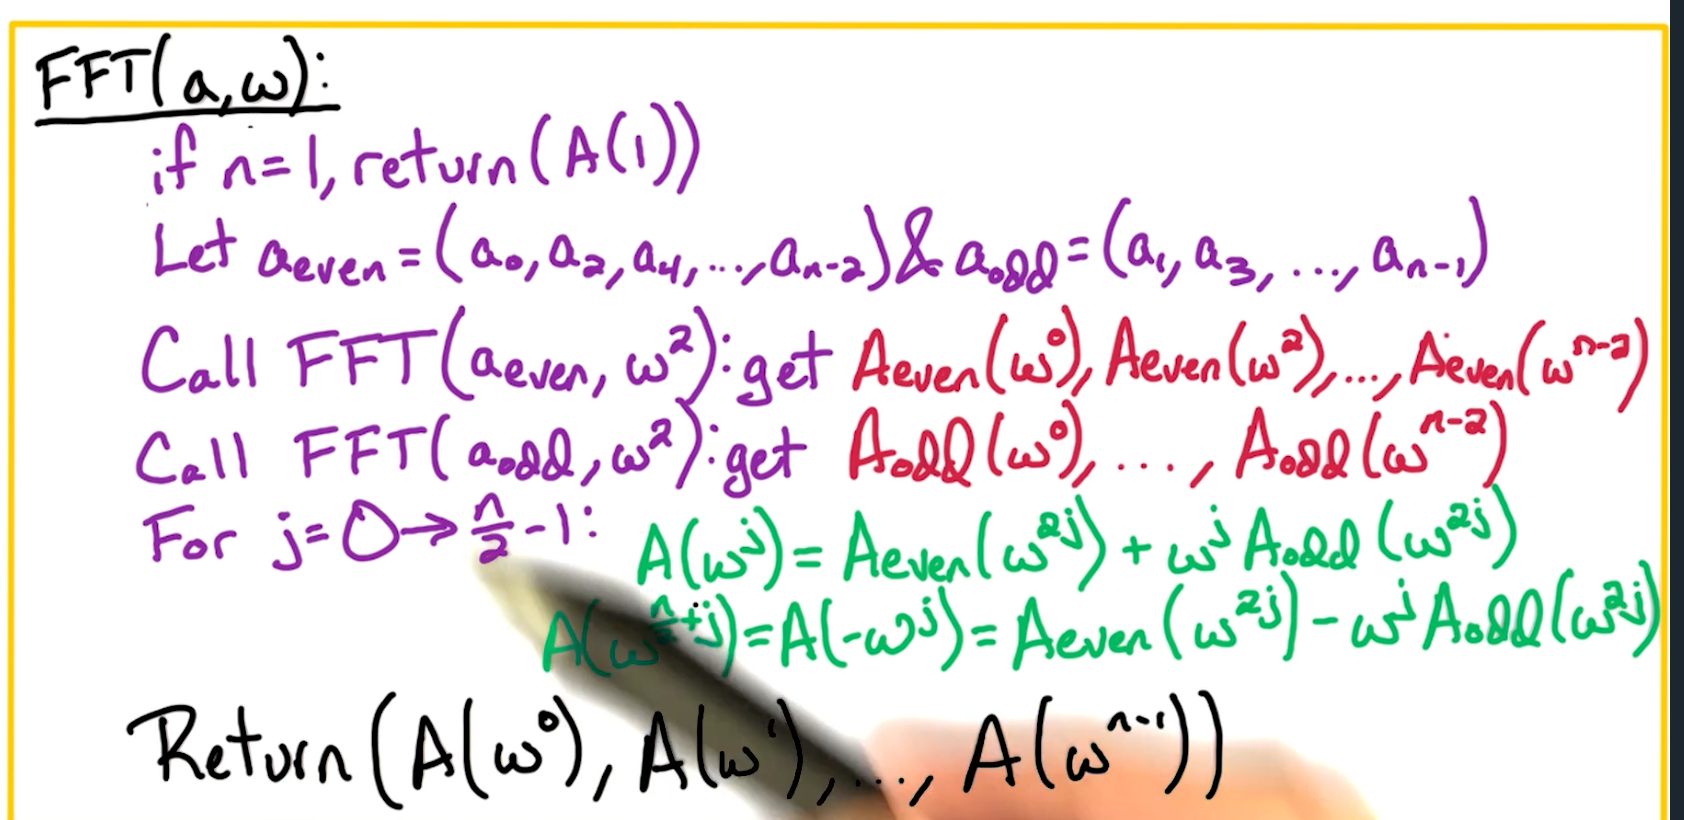 FFT(a,ω):
if n=1, return(A(1))
Let a_even = (a₀, a₂, a₄, ..., a_n-2) & a_odd = (a₁, a₃, ..., a_n-1)
Call FFT(a_even, ω²): get A_even(ω⁰), A_even(ω²), ..., A_even(ω^n-2)
Call FFT(a_odd, ω²): get A_odd(ω⁰), ..., A_odd(ω^n-2)
For j=0→n/2-1: A(ω^j) = A_even(ω^2j) + ω^j A_odd(ω^2j)
A(ω^n/2+j) = A(-ω^j) = A_even(ω^2j) - ω^j A_odd(ω^2j)
Return(A(ω⁰), A(ω¹), ..., A(ω^n-1))